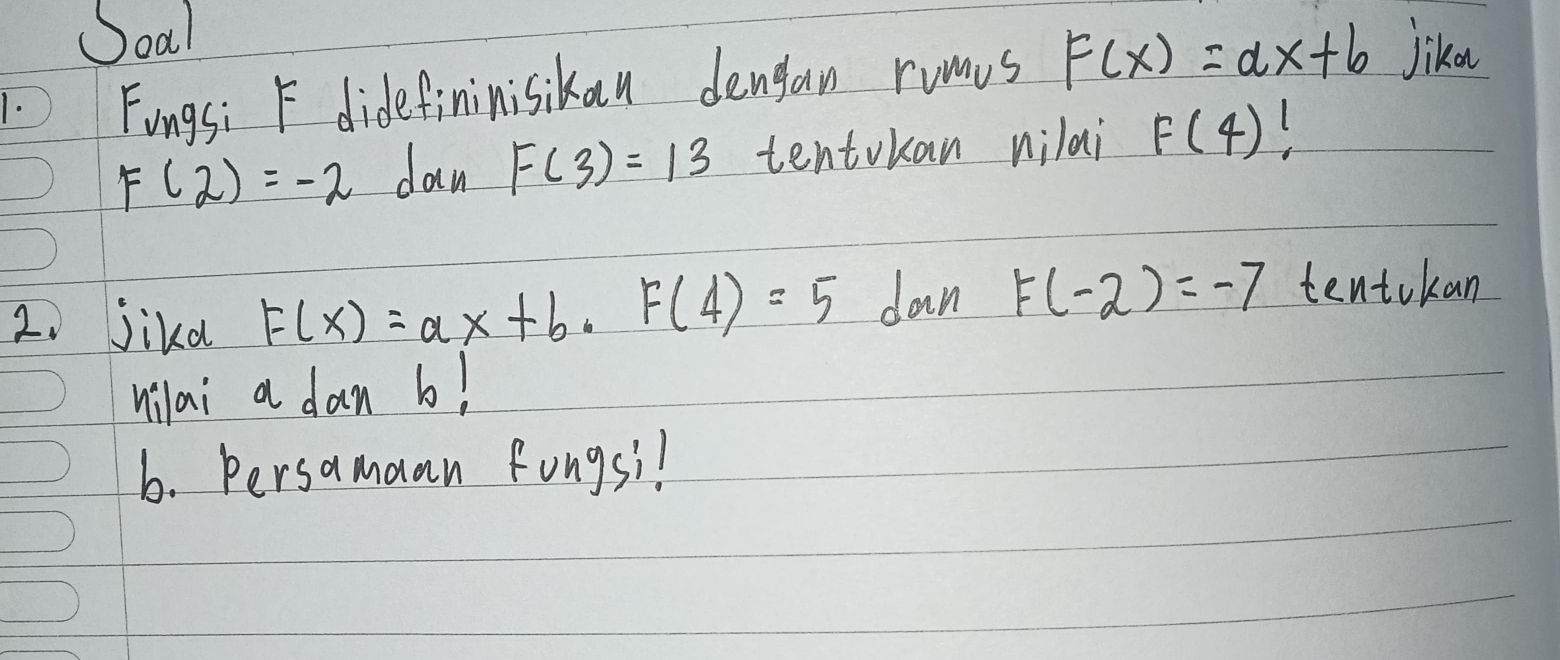 Soal
1. Fungsi F didefininisikan dengan rumus F(x) = ax+b jika
F(2) = -2 dan F(3) = 13 tentukan nilai F(4)!
2. jika F(x) = ax+b. F(4) = 5 dan F(-2) = -7 tentukan
nilai a dan b!
b. Persamaan fungsi!